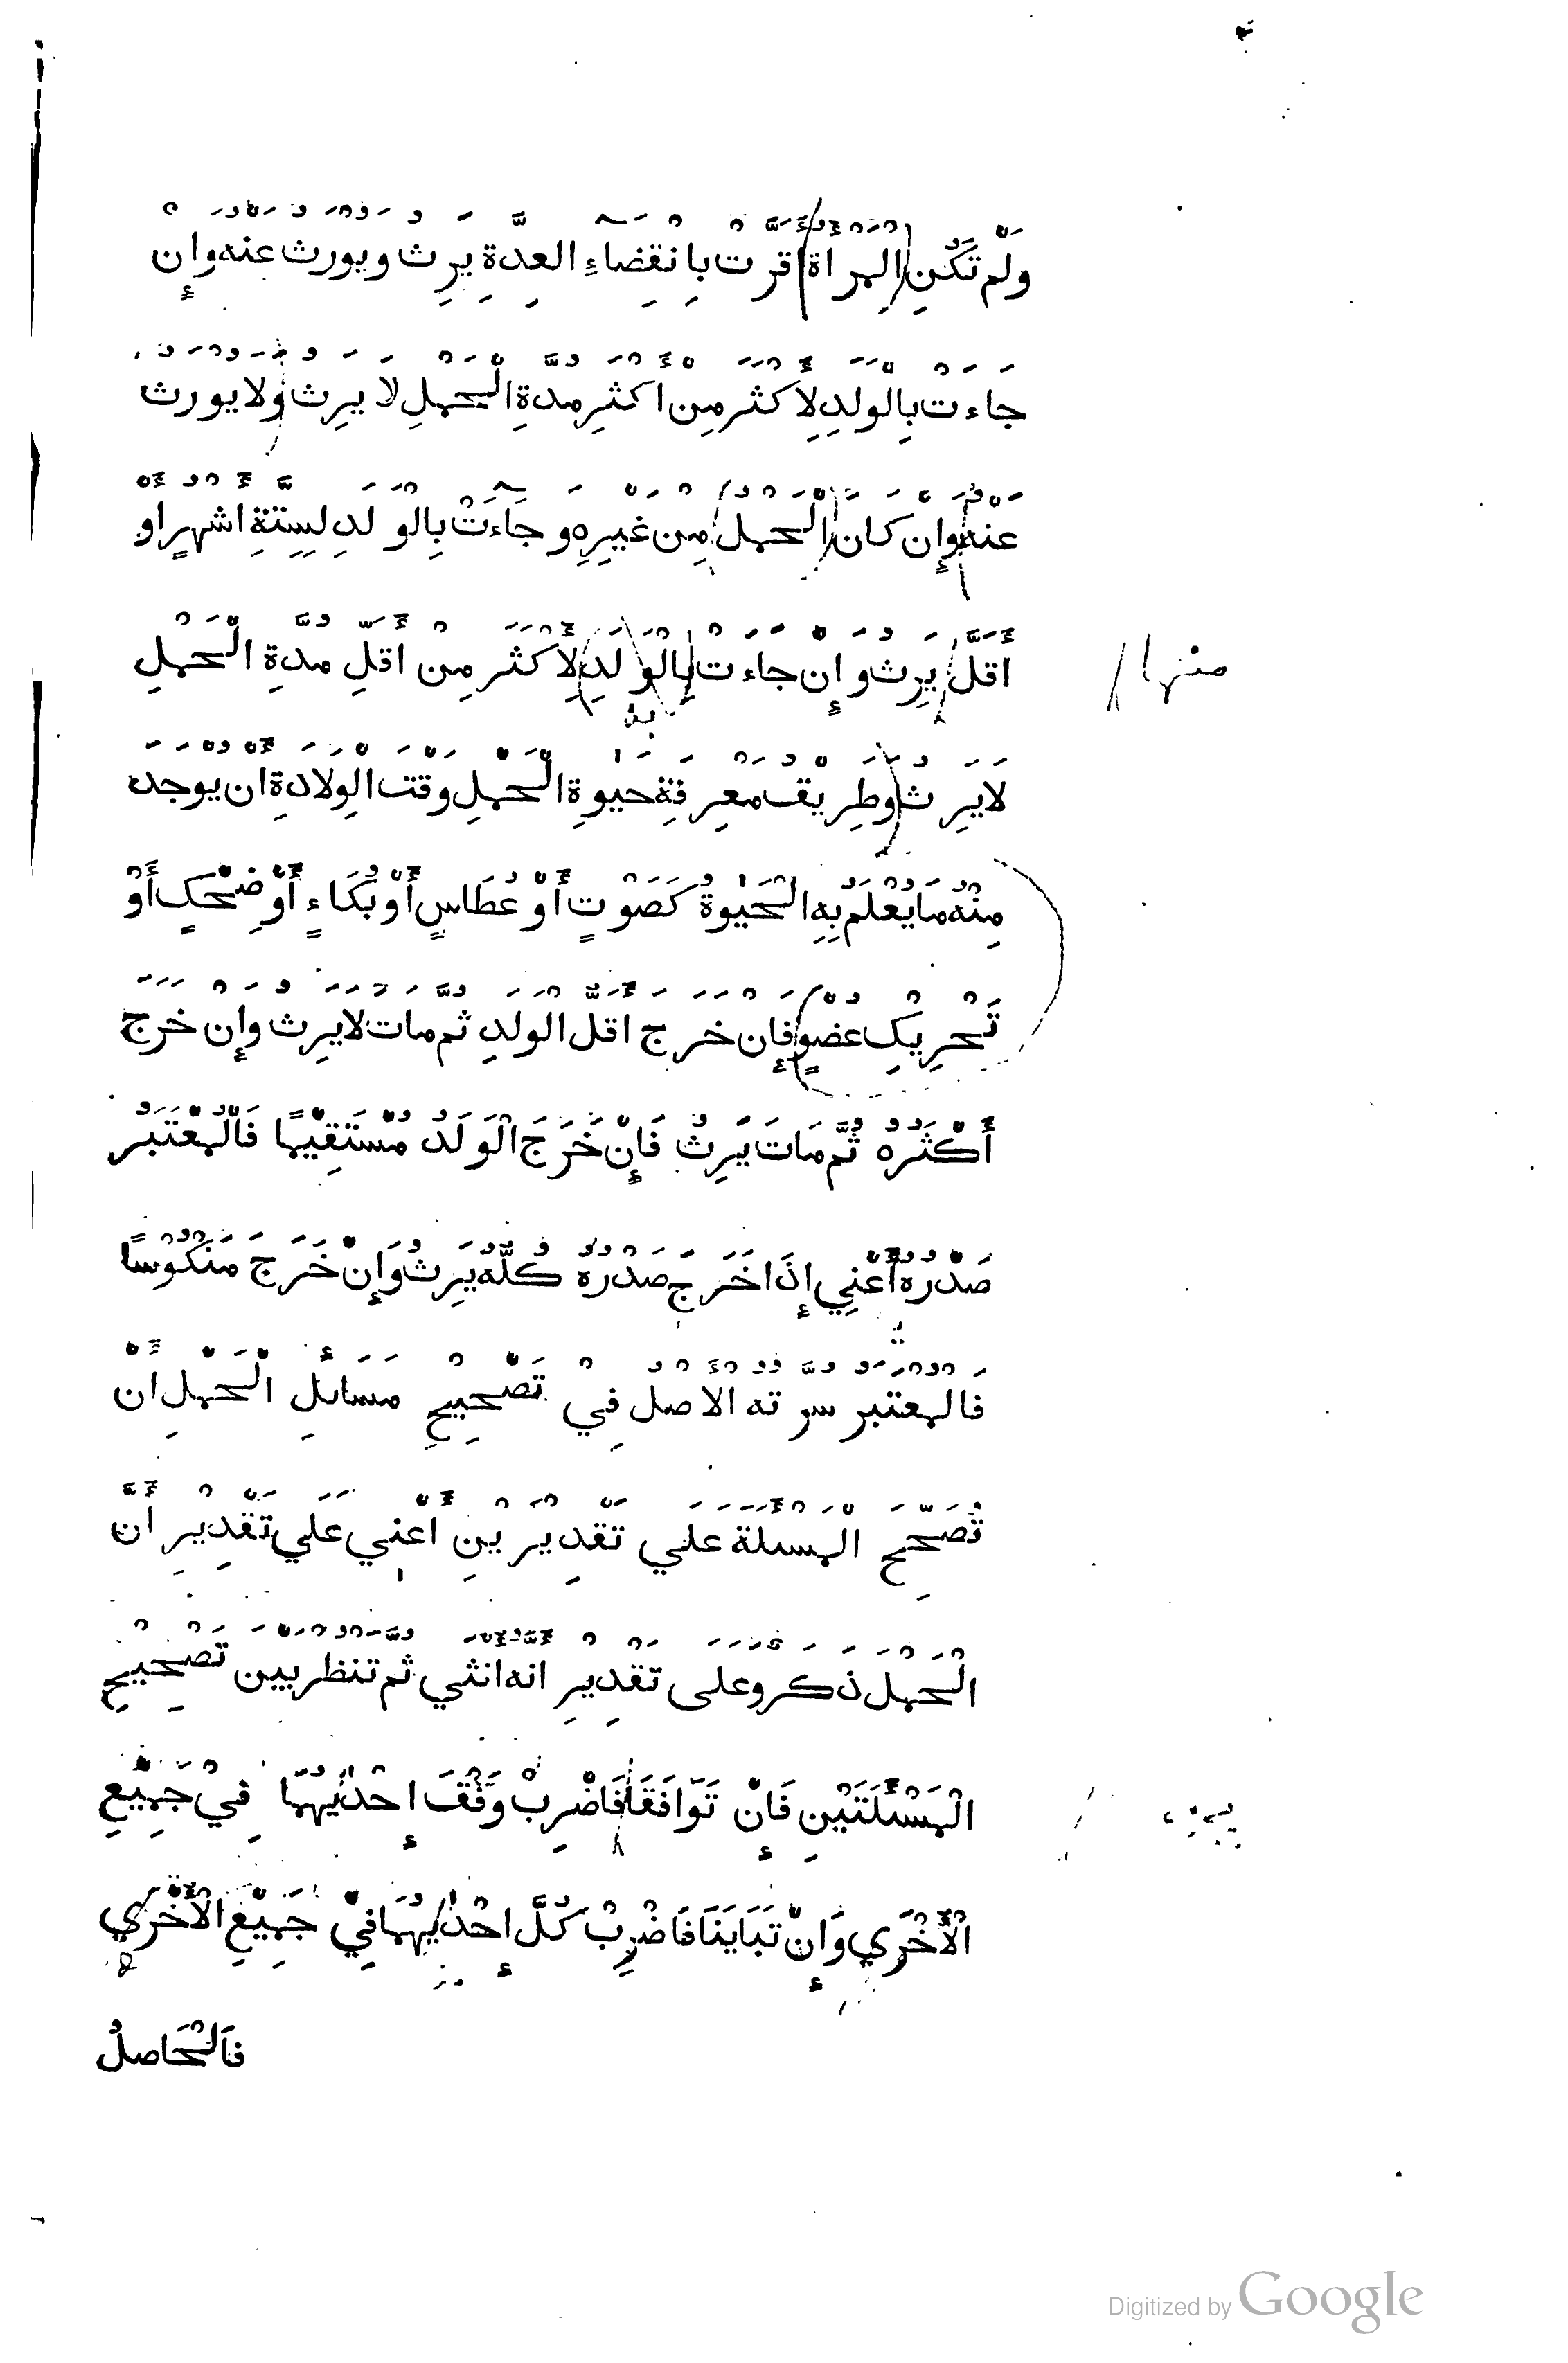 وَلَمْ تَكُنِ الْمَرْأَةُ أَقَرَّتْ بِانْقِضَاءِ الْعِدَّةِ يَرِثُ وَيُورَثُ عَنْهُ وَإِنْ
جَاءَتْ بِالْوَلَدِ لِأَكْثَرَ مِنْ أَكْثَرِ مُدَّةِ الْحَمْلِ لَا يَرِثُ وَلَا يُورَثُ
عَنْهُ وَإِنْ كَانَ الْحَمْلُ مِنْ غَيْرِهِ وَجَآءَتْ بِالْوَلَدِ لِسِتَّةِ أَشْهُرٍ أَوْ
أَقَلَّ يَرِثُ وَإِنْ جَاءَتْ بِالْوَلَدِ لِأَكْثَرَ مِنْ أَقَلِّ مُدَّةِ الْحَمْلِ
منها
به
لَا يَرِثُ وَطَرِيْقُ مَعْرِفَةِ حَيٰوةِ الْحَمْلِ وَقْتَ الْوِلَادَةِ أَنْ يُوْجَدَ
مِنْهُ مَا يُعْلَمُ بِهِ الْحَيٰوةُ كَصَوْتٍ أَوْ عُطَاسٍ أَوْ بُكَاءٍ أَوْ ضِحْكٍ أَوْ
تَحْرِيْكِ عُضْوٍ فَإِنْ خَرَجَ أَقَلُّ الْوَلَدِ ثُمَّ مَاتَ لَا يَرِثُ وَإِنْ خَرَجَ
أَكْثَرُهُ ثُمَّ مَاتَ يَرِثُ فَإِنْ خَرَجَ الْوَلَدُ مُسْتَقِيْمًا فَالْمُعْتَبَرُ
صَدْرُهُ أَعْنِي إِذَا خَرَجَ صَدْرُهُ كُلُّهُ يَرِثُ وَإِنْ خَرَجَ مَنْكُوْسًا
فَالْمُعْتَبَرُ سُرَّتُهُ الْأَصْلُ فِيْ تَصْحِيْحِ مَسَائِلِ الْحَمْلِ أَنْ
تُصَحِّحَ الْمَسْئَلَةَ عَلَي تَقْدِيْرَيْنِ أَعْنِي عَلَي تَقْدِيْرِ أَنَّ
الْحَمْلَ ذَكَرٌ وَعَلَى تَقْدِيْرِ أَنَّهُ أُنْثَي ثُمَّ تَنْظُرُ بَيْنَ تَصْحِيْحِ
الْمَسْئَلَتَيْنِ فَإِنْ تَوَافَقَا فَاضْرِبْ وَفْقَ إِحْدٰيهُمَا فِيْ جَمِيْعِ
الْأُخْرَي وَإِنْ تَبَايَنَا فَاضْرِبْ كُلَّ إِحْدٰيهُمَا فِيْ جَمِيْعِ الْأُخْرَي
فَالْحَاصِلُ
Digitized by Google